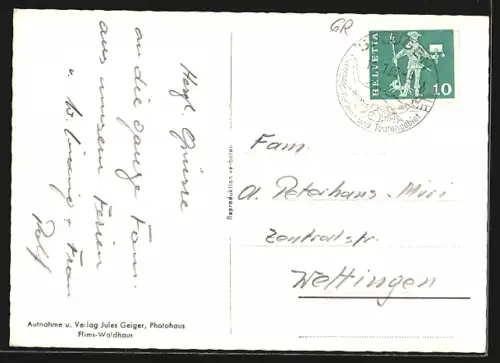 GR
HELVETIA
10
Tourengebiet
Herzl. Grüsse
an die ganze Fam.
aus unsern Ferien
v. & Frau
Rolf
Fam.
A. Peterhans-Miri
Zentralstr.
Wettingen
Reproduktion verboten
Aufnahme u. Verlag Jules Geiger, Photohaus
Flims-Waldhaus